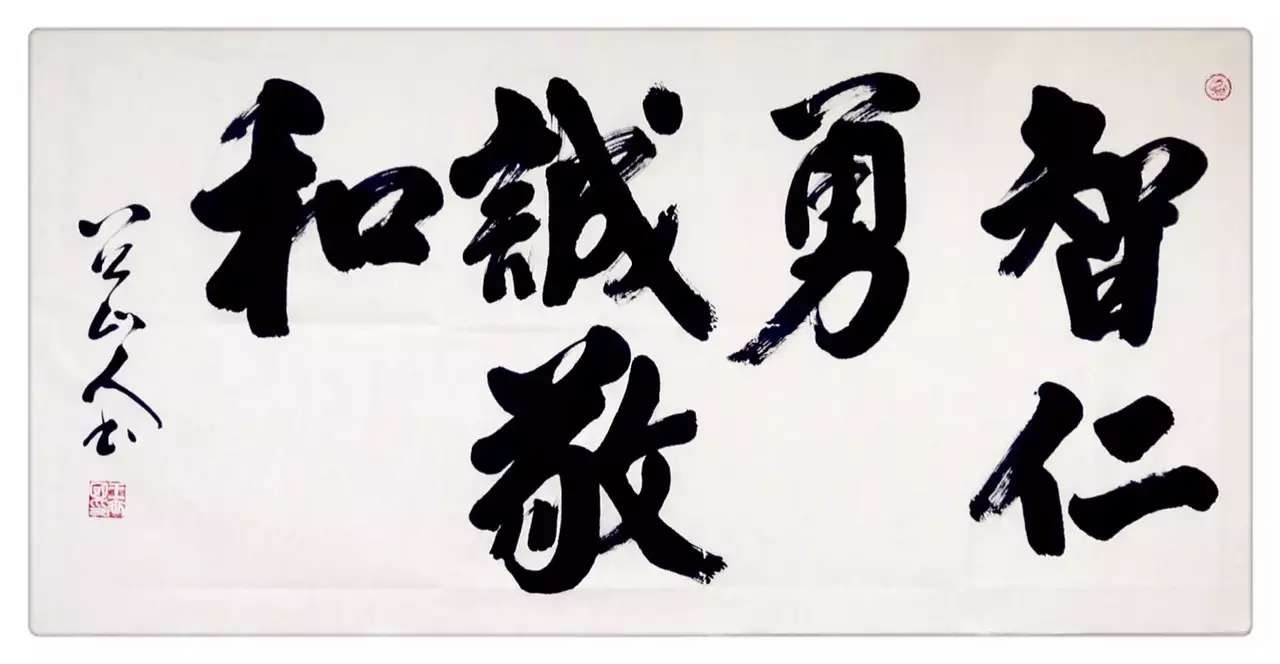 智仁
勇
誠敬
和
公山人书